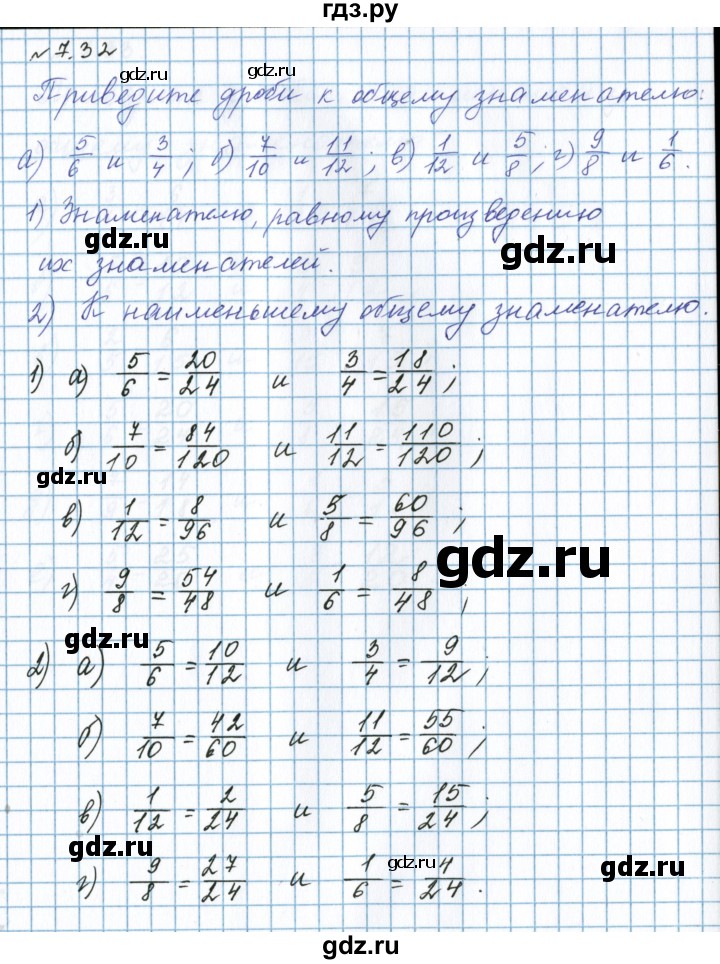 гдз.ру
№ 7.32
gdz.ru gdz.ru
Приведите дроби к общему знаменателю:
а) 5/6 и 3/4; б) 7/10 и 11/12; в) 1/12 и 5/8; г) 9/8 и 1/6.
1) Знаменателю, равному произведению
gdz.ru gdz.ru
их знаменателей.
2) К наименьшему общему знаменателю.
1) а) 5/6 = 20/24 и 3/4 = 18/24;
б) 7/10 = 84/120 и 11/12 = 110/120;
gdz.ru
в) 1/12 = 8/96 и 5/8 = 60/96;
gdz.ru
г) 9/8 = 54/48 и 1/6 = 8/48;
gdz.ru
2) а) 5/6 = 10/12 и 3/4 = 9/12;
б) 7/10 = 42/60 и 11/12 = 55/60;
в) 1/12 = 2/24 и 5/8 = 15/24;
gdz.ru gdz.ru gdz.ru
г) 9/8 = 27/24 и 1/6 = 4/24.
gdz.ru